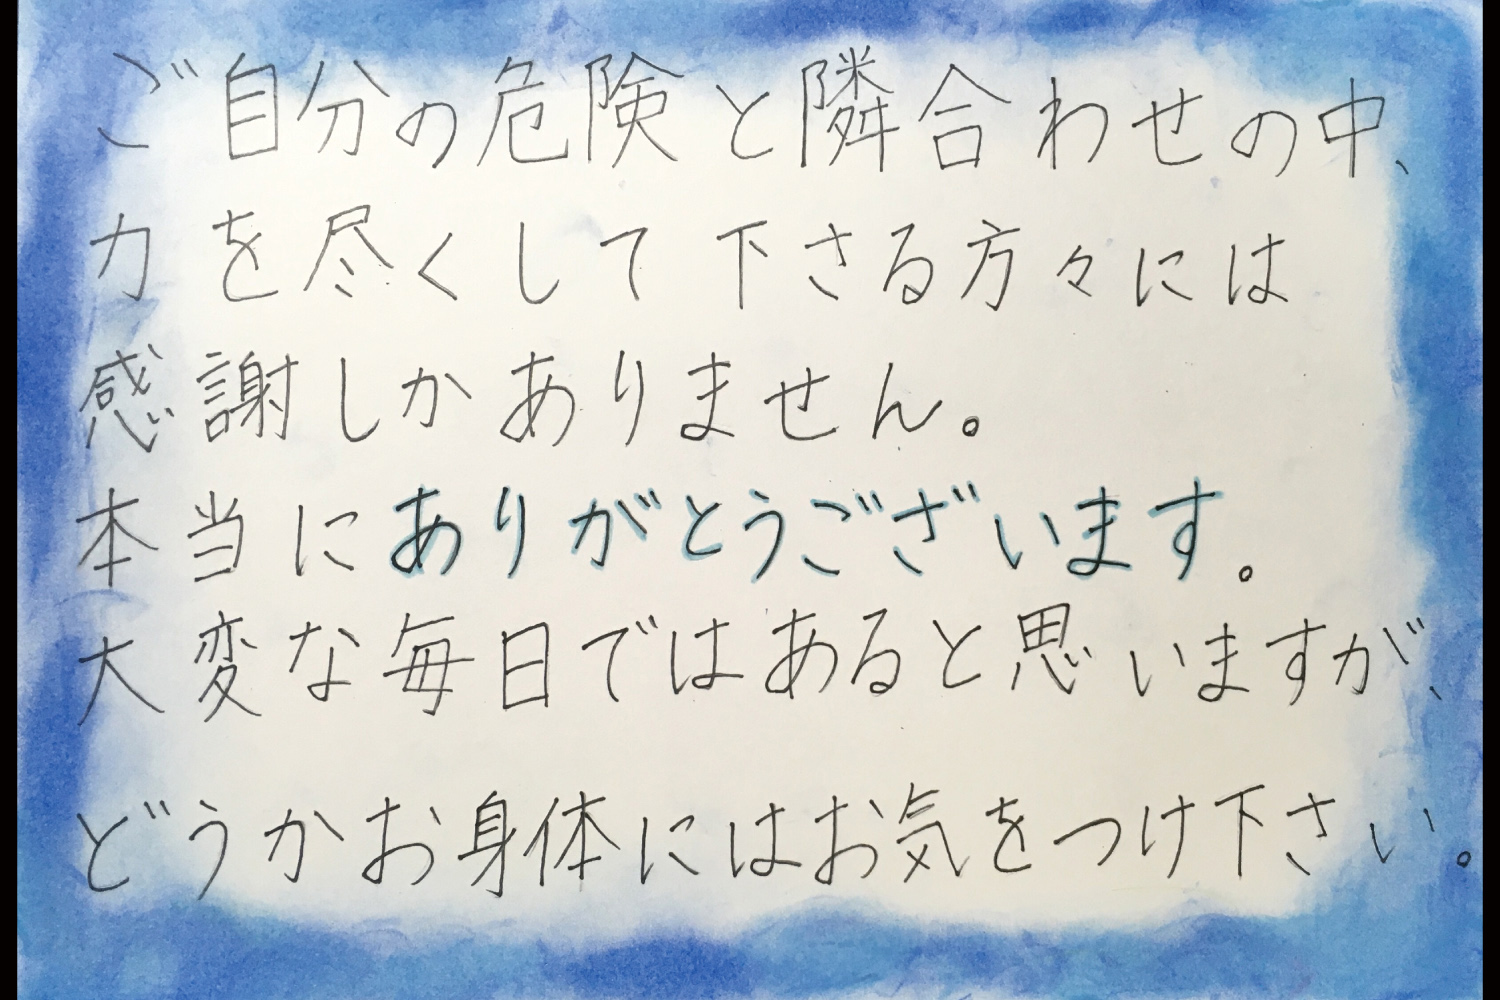 ご自分の危険と隣合わせの中、
力を尽くして下さる方々には
感謝しかありません。
本当にありがとうございます。
大変な毎日ではあると思いますが、
どうかお身体にはお気をつけ下さい。